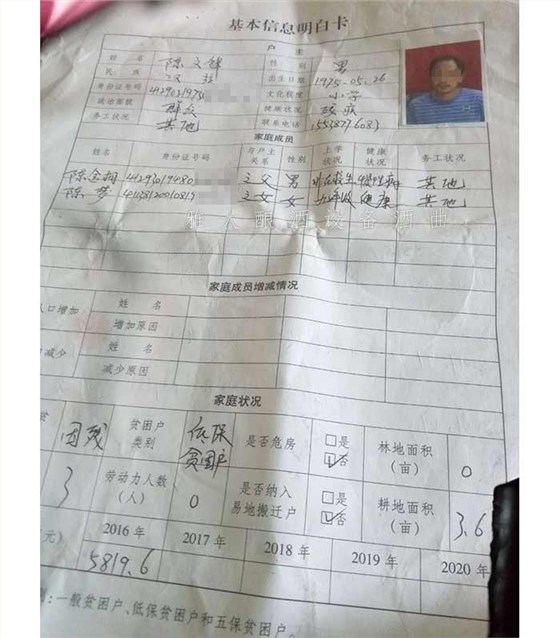 基本信息明白卡
户 主
姓 名 陈文 性 别 男
民 族 汉族 出生日期 1975-05-26
身份证号码 41290219750 文化程度 小学
政治面貌 群众 健康状况 残疾
务工状况 其他 联系电话
家庭成员
姓名 身份证号码 与户主关系 性别 上学状况 健康状况 务工状况
陈金相 4129019480 之父 男 非在校生 慢性病 其他
陈梦 之女 女 健康 其他
雅大酿酒设备酒曲
家庭成员增减情况
人口增加 姓 名
增加原因
减少 姓 名
减少原因
家庭状况
因残 贫困户类别 低保贫困户 是否危房 □是 ☑否 林地面积(亩) 0
3 劳动力人数(人) 0 是否纳入易地搬迁户 □是 ☑否 耕地面积(亩) 3.6
元) 2016年 2017年 2018年 2019年 2020年
5819.6
:一般贫困户、低保贫困户和五保贫困户。